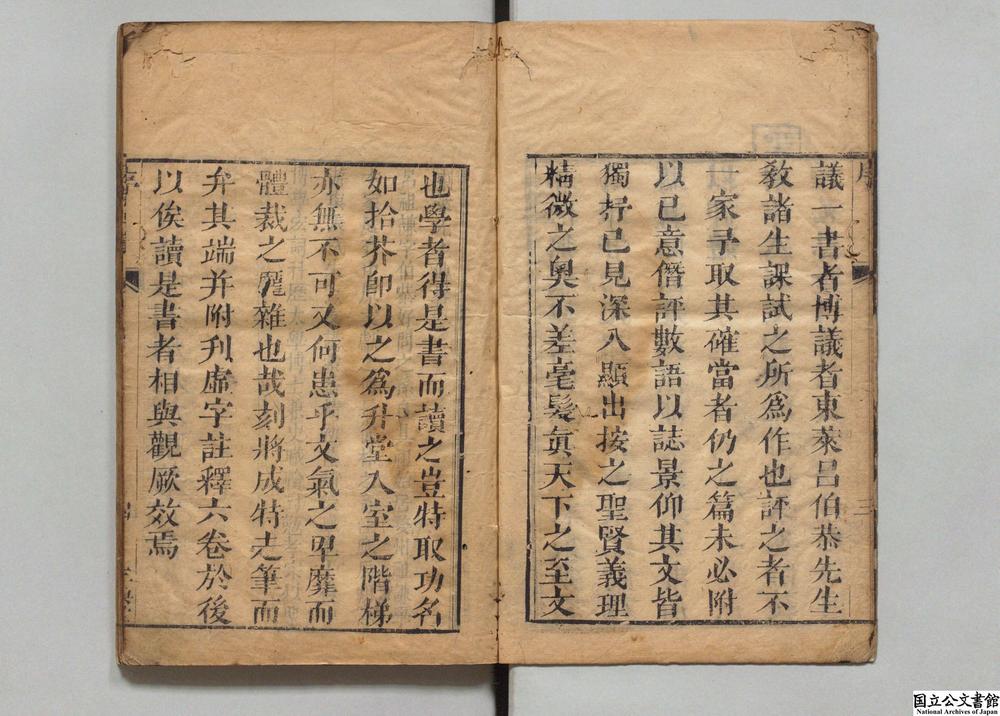 議一書者博議者東萊呂伯恭先生
教諸生課試之所爲作也評之者不
一家予取其確當者仍之篇末必附
以已意僭評數語以誌景仰其文皆
獨抒已見深入顯出按之聖賢義理
精微之奧不差毫髮眞天下之至文
也學者得是書而讀之豈特取功名
如拾芥卽以之爲升堂入室之階梯
亦無不可又何患乎文氣之卑靡而
體裁之龐雜也哉刻將成特走筆而
弁其端并附刊虛字註釋六卷於後
以俟讀是書者相與觀厥效焉
序
三
国立公文書館
National Archives of Japan